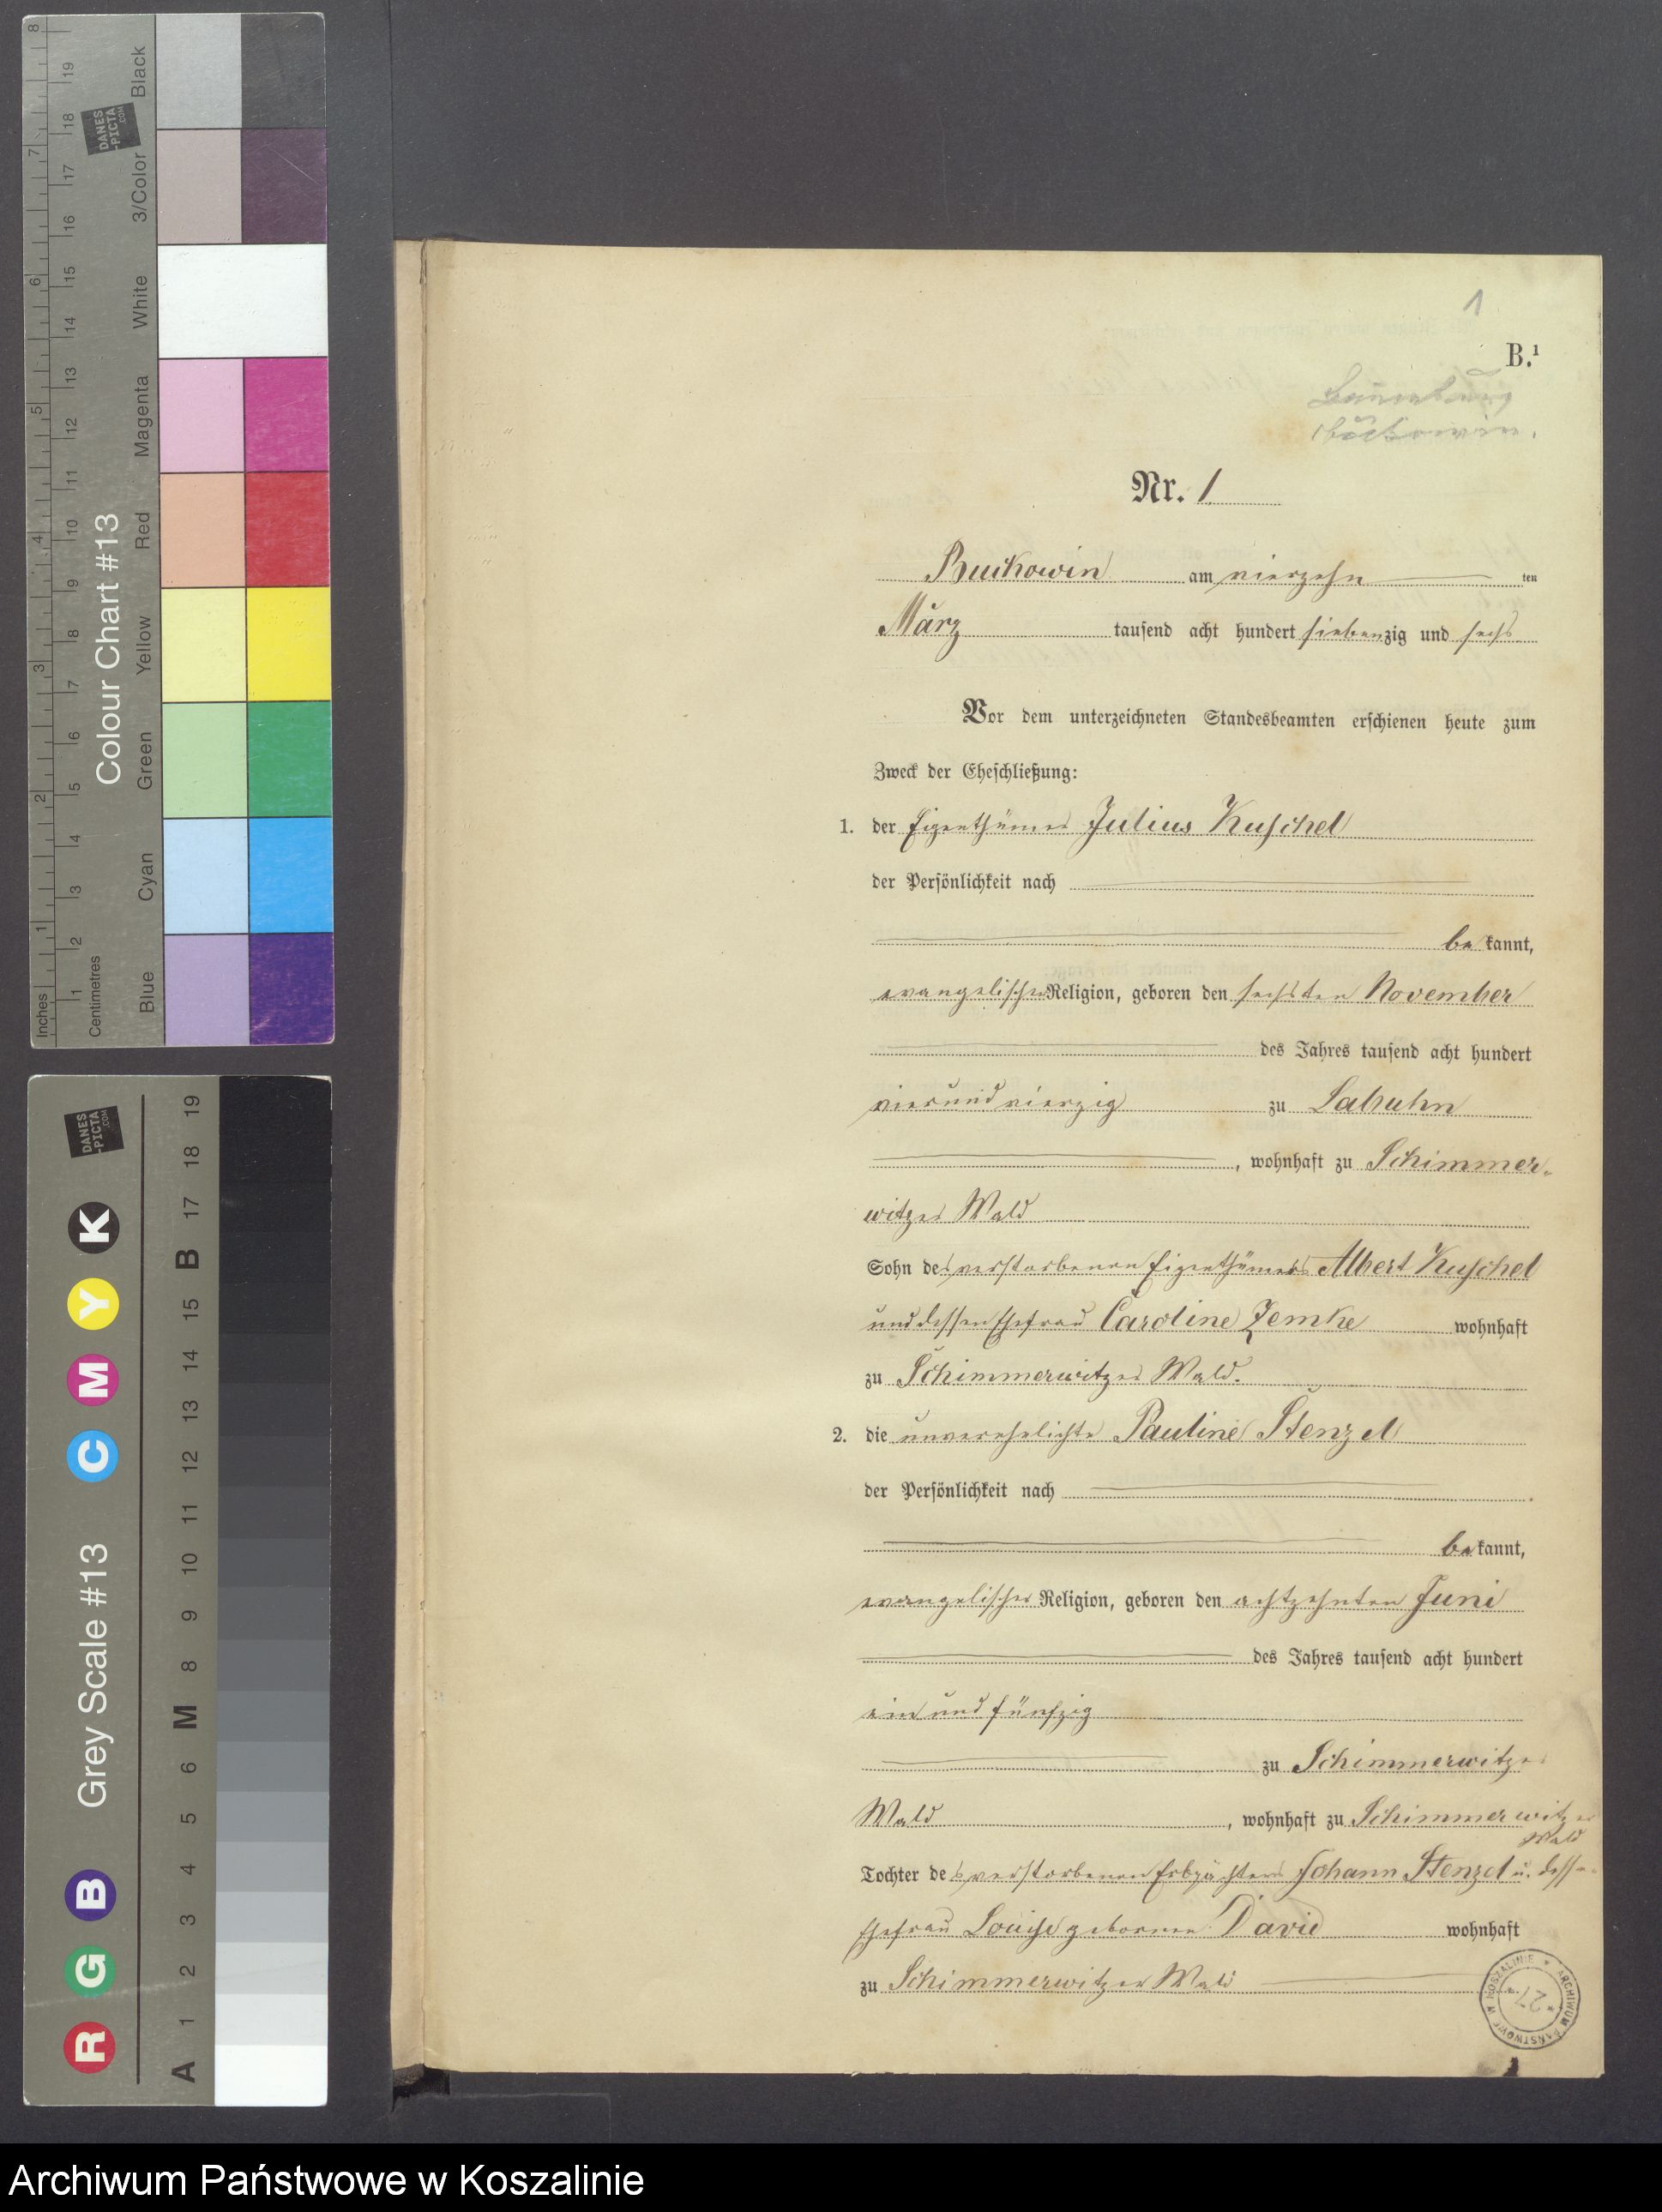 8
19
Black
18
DANES
-PICTA
.COM
7
17
3/Color
16
6
15
White
14
13
5
Magenta
12
11
Colour Chart #13
10
Red
4
9
8
Yellow
3
7
6
Green
2
5
4
Cyan
3
1
2
Blue
1
Inches
Centimetres
DANES
-PICTA
.COM
Grey Scale #13
R G B C M Y K
A 1 2 3 4 5 6 M 8 9 10 11 12 13 14 15 B 17 18 19
1
B.¹
Lauenburg
Buckowin.
Nr. 1
Buckowin am vierzehn ten
März tausend acht hundert siebenzig und sechs
Vor dem unterzeichneten Standesbeamten erschienen heute zum
Zweck der Eheschließung:
1. der Eigenthümer Julius Kuschel
der Persönlichkeit nach
be kannt,
evangelischer Religion, geboren den sechsten November
des Jahres tausend acht hundert
vierundvierzig zu Labuhn
, wohnhaft zu Schimmer-
witzer Wald
Sohn des verstorbenen Eigenthümers Albert Kuschel
und dessen Ehefrau Caroline Zemke wohnhaft
zu Schimmerwitzer Wald.
2. die unverehelichte Pauline Stenzel
der Persönlichkeit nach
be kannt,
evangelischer Religion, geboren den achtzehnten Juni
des Jahres tausend acht hundert
ein und fünfzig
zu Schimmerwitzer
Wald , wohnhaft zu Schimmerwitzer
Wald
Tochter des verstorbenen Erbpächters Johann Stenzel u. dessen
Ehefrau Louise geborene David wohnhaft
zu Schimmerwitzer Wald
ARCHIWUM PAŃSTWOWE W KOSZALINIE
* 27 *
Archiwum Państwowe w Koszalinie